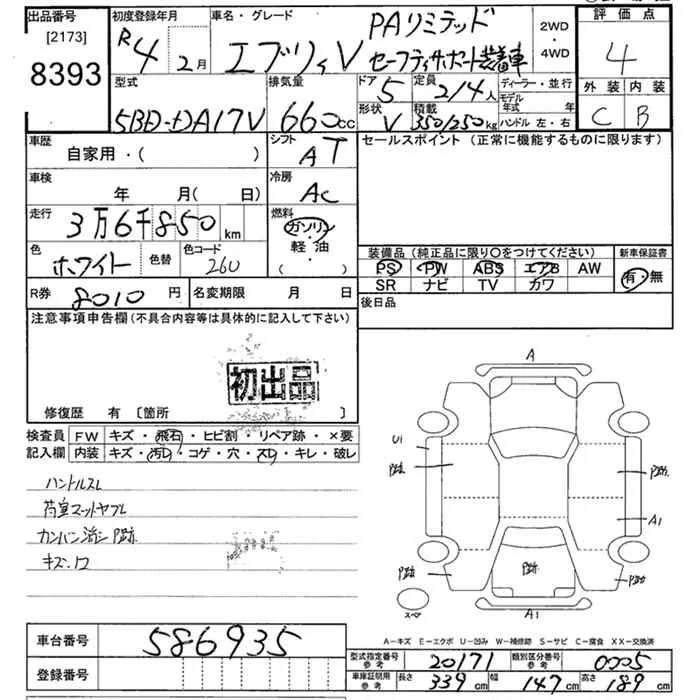 出品番号
[2173]
8393
初度登録年月
R4 2月
車名・グレード
エブリィV
PAリミテッド
セーフティサポート装着車
2WD
・
4WD
評価点
4
外装 内装
C B
型式
5BD-DA17V
排気量
660cc
ドア
5
定員
2/4人
形状
V
積載
350/250kg
ディーラー・並行
モデル年式 年
ハンドル 左・右
車歴
自家用・( )
シフト
AT
車検
年 月( 日)
冷房
AC
走行
3万6千850km
燃料
ガソリン
・
軽・油
・
( )
色
ホワイト
色替
色コード
26U
R券
8010円
名変期限 月 日
セールスポイント(正常に機能するものに限ります)
装備品(純正品に限り○をつけてください)
新車保証書
PS PW ABS エアB AW
SR ナビ TV カワ
有・無
後日品
注意事項申告欄(不具合内容等は具体的に記入して下さい)
初出品
修復歴 有 [箇所 ]
検査員
記入欄
FW キズ・飛石・ヒビ割・リペア跡・×要
内装 キズ・汚レ・コゲ・穴・スレ・キレ・破レ
ハンドルスレ
荷室マットヤブレ
カンバン消シP跡
キズ・凹
A
U1
P跡
P跡
A1
P跡
P跡
P跡
スペア
A1
A-キズ E-エクボ U-凹み W-補修跡 S-サビ C-腐食 XX-交換済
車台番号
586935
登録番号
型式指定番号
参考
20171
類別区分番号
参考
0005
車庫証明用
参考
長さ
339cm
幅
147cm
高さ
189cm